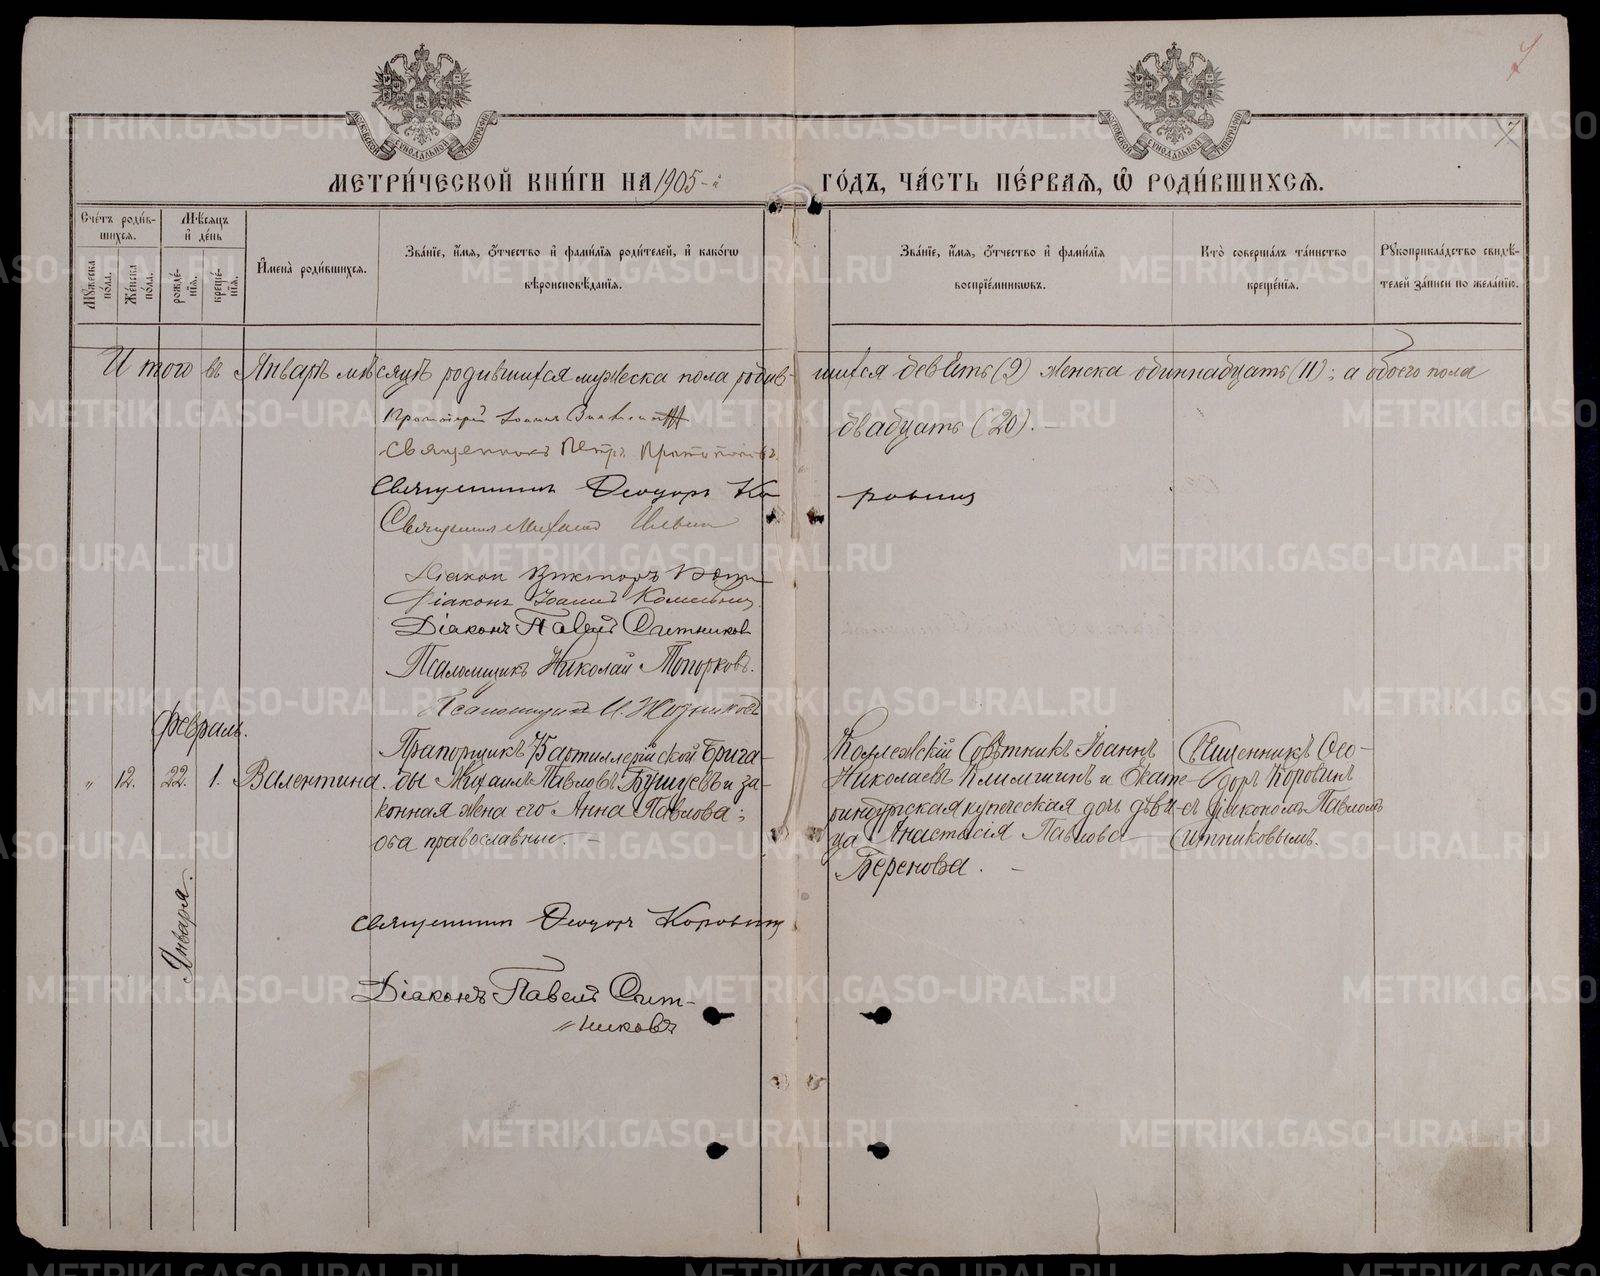 7
МОСКОВСКОЙ СУНОДАЛЬНОЙ ТИПОГРАФИИ
МОСКОВСКОЙ СУНОДАЛЬНОЙ ТИПОГРАФИИ
МЕТРИ́ЧЕСКОЙ КНИ́ГИ НА 1905-й ГО́ДЪ, ЧА́СТЬ ПЕ́РВАѦ, Ѽ РОДИ́ВШИХСѦ.
Сче́тъ роди́в-
шихсѧ.
Мꙋ́жеска по́ла.
Же́нска по́ла.
Мѣ́сѧцъ и҆ де́нь
рожде́-
нїѧ.
креще́-
нїѧ.
И҆мена̀ роди́вшихсѧ.
Зва́нїе, и҆́мѧ, ѻ҆́тчество и҆ фами́лїѧ роди́телей, и҆ како́гѡ
вѣроисповѣ́данїѧ.
Зва́нїе, и҆́мѧ, ѻ҆́тчество и҆ фами́лїѧ
воспрїе́мниковъ.
Кто̀ соверша́лъ та́инство
креще́нїѧ.
Рꙋкоприкла́дство свидѣ́-
телей за́писи по жела́нїю.
Итого въ Январѣ мѣсяцѣ родившихся мужеска пола родив- шихся девять (9) женска одиннадцать (11); а обоего пола
двадцать (20). —
Протоіерей Іоаннъ
Священникъ Петръ Протопоповъ
Священникъ Ѳеодоръ Ко ровинъ
Священникъ Михаилъ Ильинъ
Діаконъ Викторъ
Діаконъ Іоаннъ
Діаконъ Павелъ Ситниковъ
Псаломщикъ Николай Топорковъ.
Псаломщикъ И.
Февраль.
" 12. 22. 1. Валентина.
Января.
Прапорщикъ артиллерійской брига-
ды Михаилъ Павловъ и за-
конная жена его Анна Павлова;
оба православные. —
Коллежскій Совѣтникъ Іоаннъ
Николаевъ Климшинъ и Екате-
ринбургская купеческая дочь дѣви-
ца Анастасія Павлова
Беренова. —
Священникъ Ѳео-
доръ Коровинъ
съ діакономъ Павломъ
Ситниковымъ.
Священникъ Ѳеодоръ Коровинъ
Діаконъ Павелъ Сит-
никовъ
METRIKI.GASO-URAL.RU